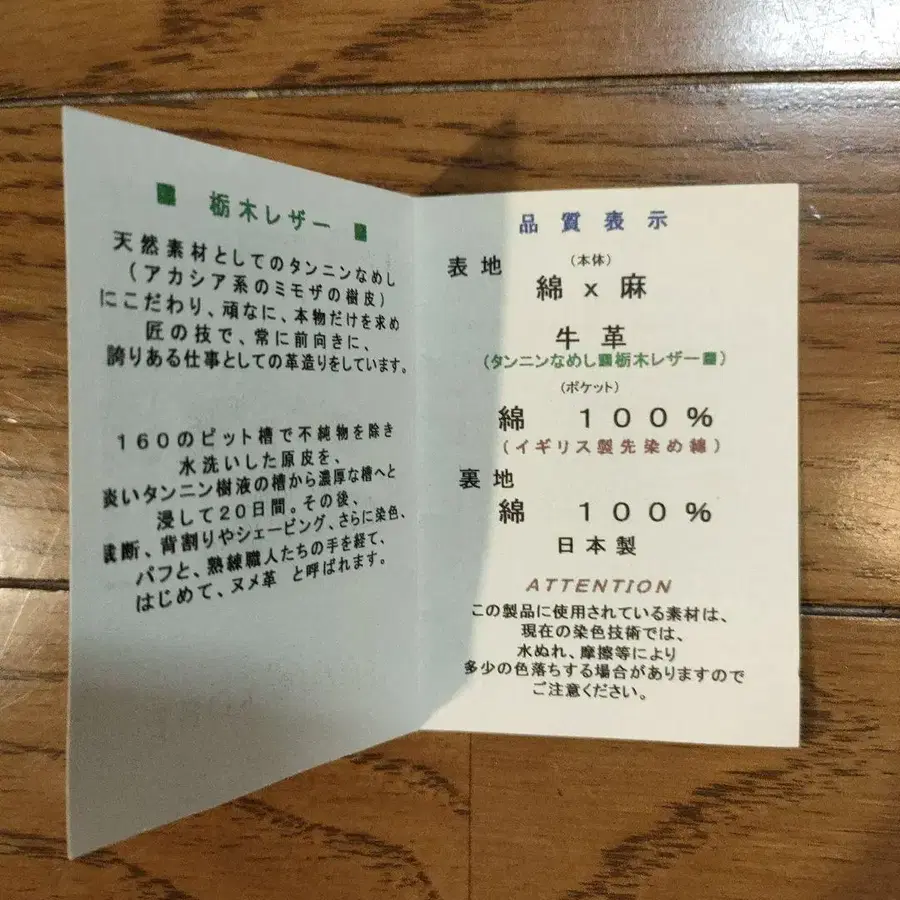 栃木レザー
天然素材としてのタンニンなめし
(アカシア系のミモザの樹皮)
にこだわり、頑なに、本物だけを求め
匠の技で、常に前向きに、
誇りある仕事としての革造りをしています。
160のピット槽で不純物を除き
水洗いした原皮を、
淡いタンニン樹液の槽から濃厚な槽へと
浸して20日間。その後、
裁断、背割りやシェービング、さらに染色、
バフと、熟練職人たちの手を経て、
はじめて、ヌメ革 と呼ばれます。
品質表示
表地 (本体)
綿 x 麻
牛革
(タンニンなめし 栃木レザー )
(ポケット)
綿 100%
(イギリス製先染め綿)
裏地
綿 100%
日本製
ATTENTION
この製品に使用されている素材は、
現在の染色技術では、
水ぬれ、摩擦等により
多少の色落ちする場合がありますので
ご注意ください。